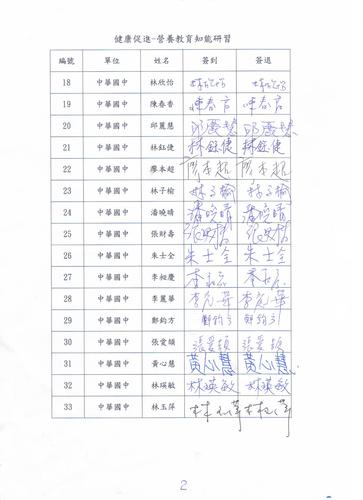 健康促進-營養教育知能研習
編號 單位 姓名 簽到 簽退
18 中華國中 林欣怡 林欣怡 林欣怡
19 中華國中 陳春香 陳春香 陳春香
20 中華國中 邱麗慧 邱麗慧 邱麗慧
21 中華國中 林鈺倢 林鈺倢 林鈺倢
22 中華國中 廖本超 廖本超 廖本超
23 中華國中 林子榆 林子榆 林子榆
24 中華國中 潘曉晴 潘曉晴 潘曉晴
25 中華國中 張財壽
26 中華國中 朱士全 朱士全 朱士全
27 中華國中 李昶慶
28 中華國中 李麗華
29 中華國中 鄭鈞方
30 中華國中 張愛頡 張愛頡 張愛頡
31 中華國中 黃心慧 黃心慧 黃心慧
32 中華國中 林瑛敏 林瑛敏 林瑛敏
33 中華國中 林玉萍
2